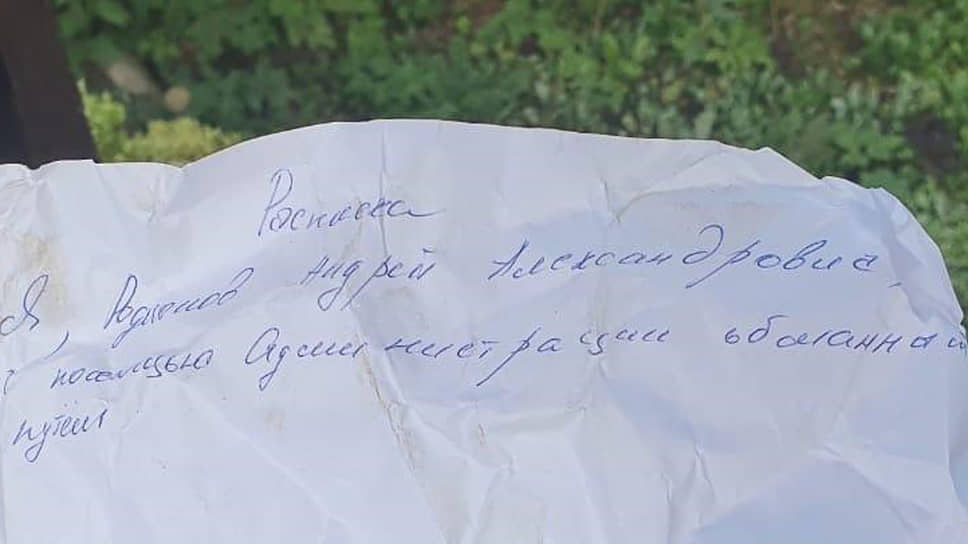 Расписка
Я, Родионов Андрей Александрович,
с помощью Администрации обманным
путём